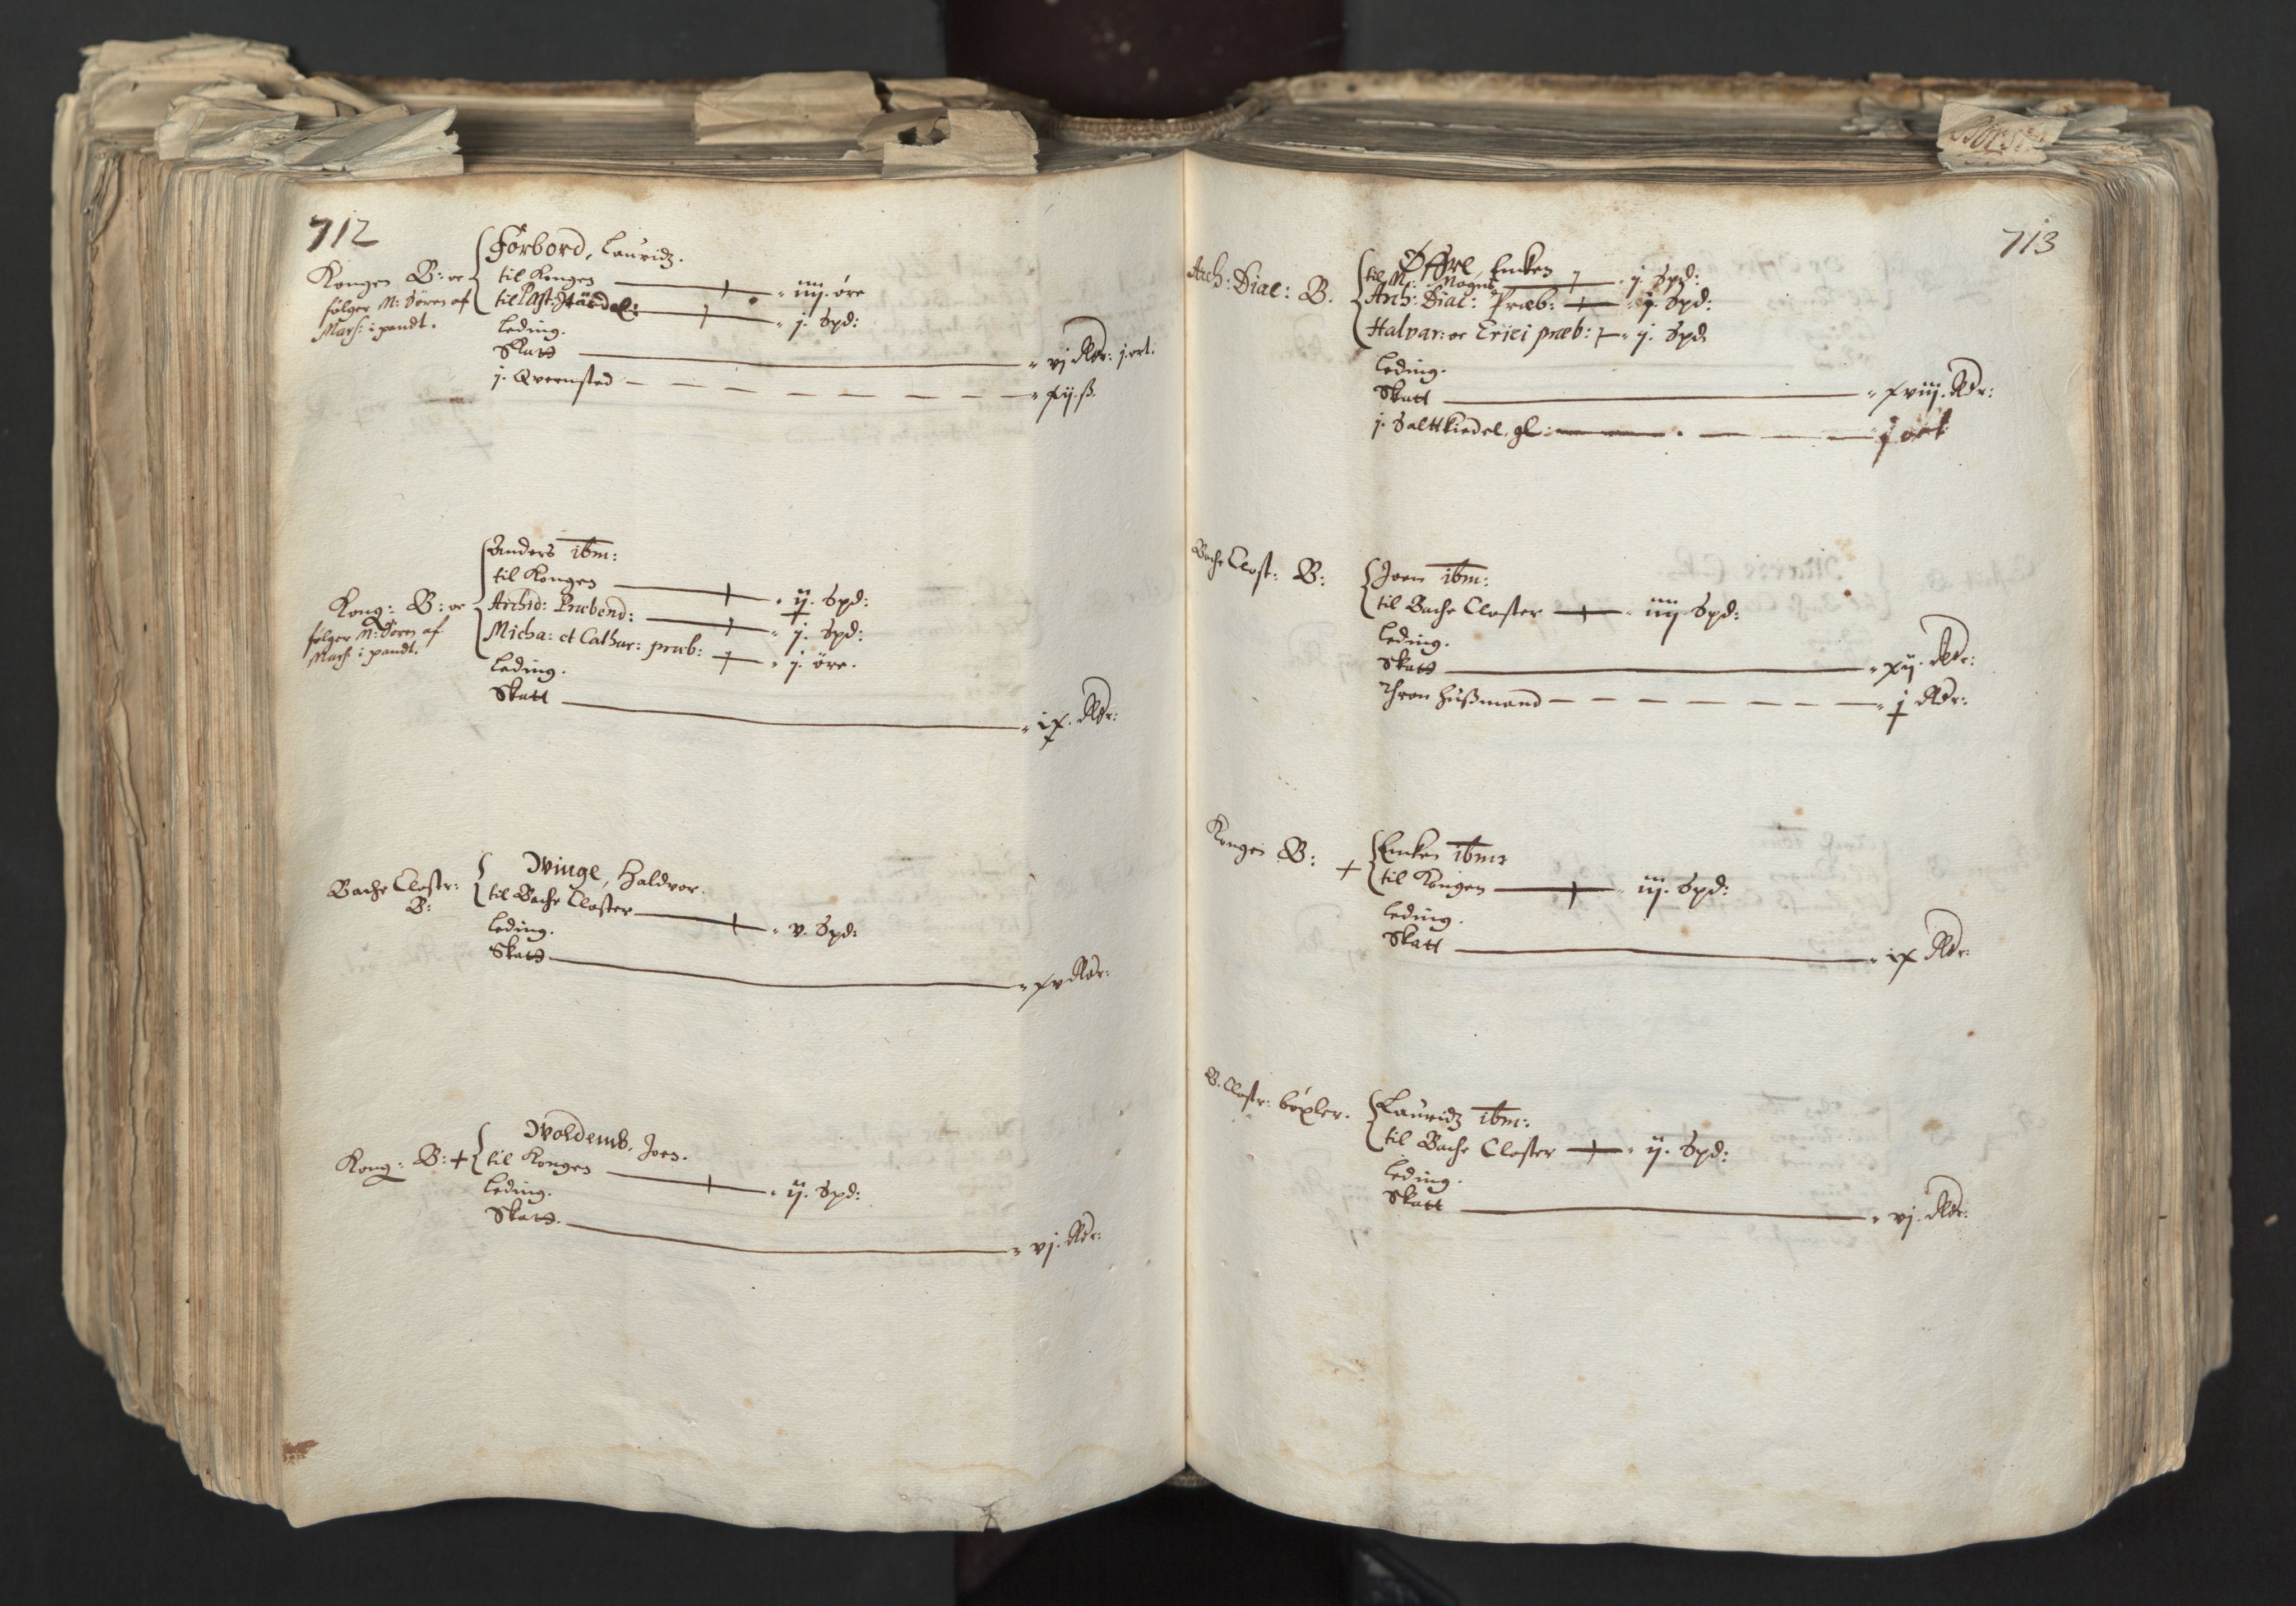 712
Kongen B: oc
følger M: Søren af
Mars: i pandt.
Forbord, Lauridz.
til Kongen - iiij. øre
til Past: Størdal: - j. Spd:
Leding.
Skatt - vj Rdr: j. ort:
j. Qvernsted - xij. ß.
Kong: B: oc
følger M: Søren af
Mars: i pandt.
Anders ibm:
til Kongen - ij. Spd:
Archid: Præbend: - j. Spd:
Micha: et Cathar: præb: - j. øre.
Leding.
Skatt - ix. Rdr:
Bache Clostr:
B:
Winge, Haldvor.
til Bache Closter - v. Spd:
Leding.
Skatt - xv Rdr:
Kong: B: +
Woldemb, Joen.
til Kongen - ij. Spd:
Leding.
Skatt. - vj. Rdr:
713
Arch: Diac: B.
Øffre, Encken
til M: Mogns - j. Spd:
Arch: Diac: Præb: - j. Spd:
Halvar: oc Erici præb: - j. Spd
Leding.
Skatt - xviij. Rdr:
j. Salttkiedel, gl: - j ort
Bache Clost: B:
Joen ibm:
til Bache Closter - iiij. Spd:
Leding.
Skatt - xij. Rdr:
Thron Hußmand - j Rdr:
Kongen B: +
Encken ibm:
til Kongen - iij. Spd:
Leding.
Skatt - ix Rdr:
B. Clostr: böxler.
Lauridz ibm:
til Bache Closter - ij. Spd:
Leding.
Skatt - vj. Rdr: